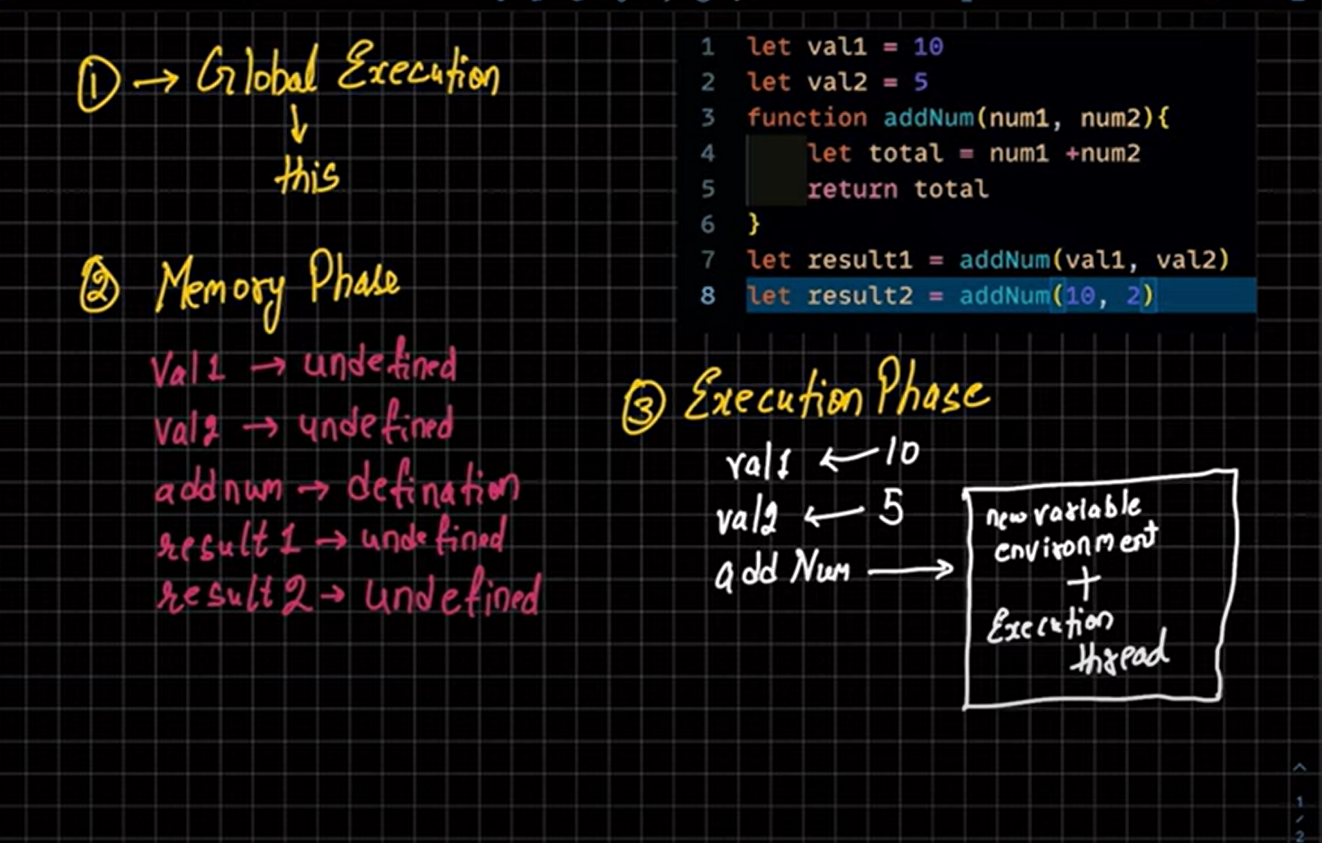 ① → Global Execution
↓
this
② Memory Phase
Val1 → undefined
val2 → undefined
addnum → defination
result1 → undefined
result2 → undefined
1 let val1 = 10
2 let val2 = 5
3 function addNum(num1, num2){
4 let total = num1 +num2
5 return total
6 }
7 let result1 = addNum(val1, val2)
8 let result2 = addNum(10, 2)
③ Execution Phase
val1 ← 10
val2 ← 5
addNum →
new variable
environment
+
Execution
thread
1
/
2